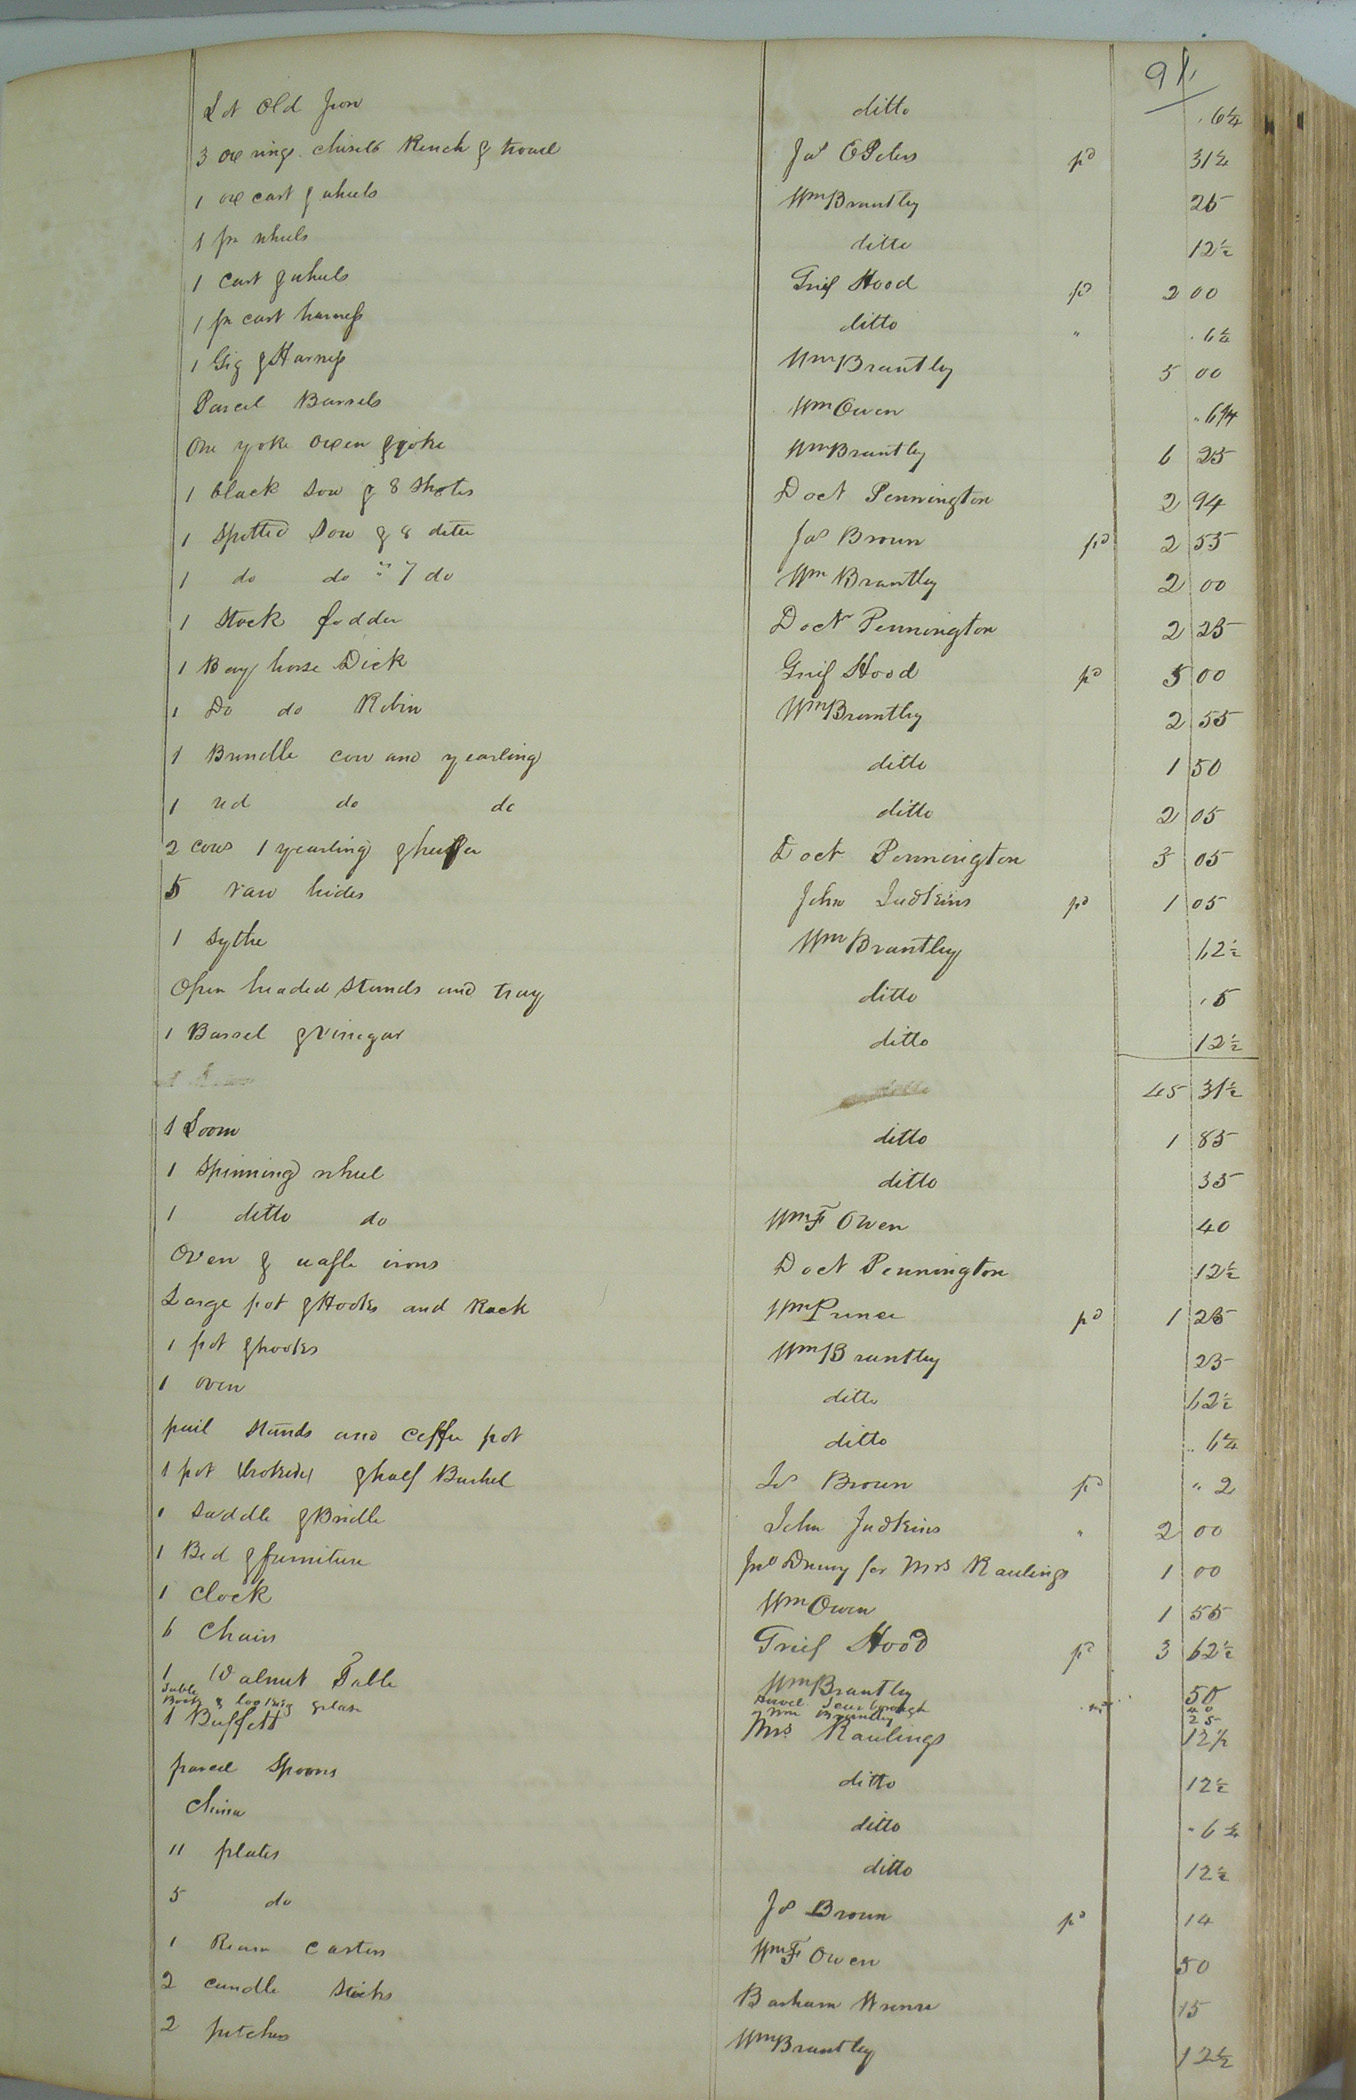 91
Lot Old Iron ditto . 6¼
3 ox rings. chisels Rench & trowel Jas O Peters pd 31¼
1 ox cart & wheels Wm Brantley 25
1 pr wheels ditto 12½
1 Cart & wheels Grief Hood pd 2 00
1 pr cart harness ditto " . 6¼
1 Gig & Harness Wm Brantley 5 00
Parcel Barrels Wm Owen " 6¼
One yoke oxen & yoke Wm Brantley 6 25
1 black Sow & 8 Shotes Doct Pennington 2 94
1 Spotted Sow & 8 ditto Jas Brown pd 2 55
1 do do " 7 do Wm Brantley 2 00
1 Stack fodder Doctr Pennington 2 25
1 Bay horse Dick Grief Hood pd 5 00
1 Do do Robin Wm Brantley 2 55
1 Brindle cow and yearling ditto 1 50
1 red do do ditto 2 05
2 cows 1 yearling & heifer Doct Pennington 3 05
5 raw hides John Judkins pd 1 05
1 Sythe Wm Brantley 62½
Open headed Stands and tray ditto . 5
1 Barrel & vinegar ditto 12½
45 31½
1 Loom ditto 1 85
1 Spinning wheel ditto 35
1 ditto do Wm F Owen 40
Oven & wafle irons Doct Pennington 12½
Large pot & Hooks and Rack Wm Prince pd 1 25
1 pot & hooks Wm Brantley 25
1 oven ditto 62½
pail Stands and Coffee pot ditto " 6¼
1 pot (broken) & half Bushel Js Brown pd " 2
1 Saddle & Bridle John Judkins " 2 00
1 Bed & furniture Jno Drewry for Mrs Rawlings 1 00
1 Clock Wm Owen 1 55
6 Chairs Grief Hood pd 3 62½
1 Walnut Table Wm Brantley 50
Table 40
Book & looking glass Wm Brantley 25
1 Buffett Mrs Rawlings 12½
parcel Spoons ditto 12½
China ditto " 6¼
11 plates ditto 12½
5 do Js Brown pd 14
1 castors Wm F Owen 50
2 candle Sticks Barham 15
2 pitchers Wm Brantley 12½